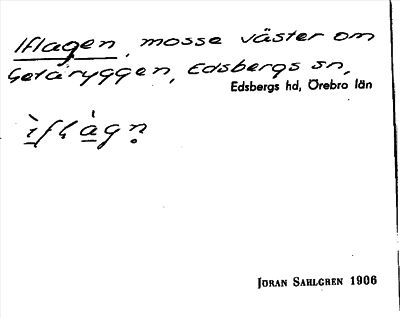 Iflagen, mosse väster om
Getåryggen, Edsbergs sn,
Edsbergs hd, Örebro län
JÖRAN SAHLGREN 1906